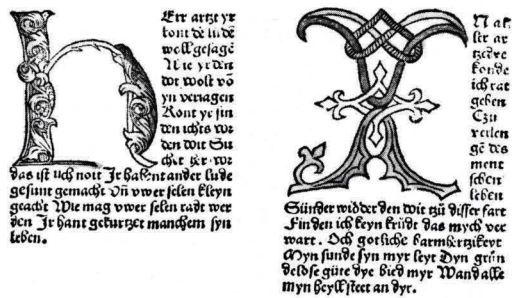 HErr artzt yr
kont dē ludē
woll gesagē
Wie yr den
dot wolt vō
yn veriagen
Kont yr fin
den ichts vor
den doit Su
chēt yer vor
das ist uch noit Ir habent ander lude
gesunt gemacht Vñ vwer selen kleyn
geacht Wie mag vwer selen radt wer
den Ir hant gekurtzet manchem syn
leben.
IN al
ler ar
tzedye
konde
ich rat
geben
Czu
ge des
ment
schen
leben
Sünder widder den doit tzü disser fart
Finden ich keyn krüdt das mych ver
wart. Och gotliche barmhertzikeyt
Myn sunde syn myr leyt Dyn grün
delose güte dye bied myr Wand alle
myn heyll steet an dyr.